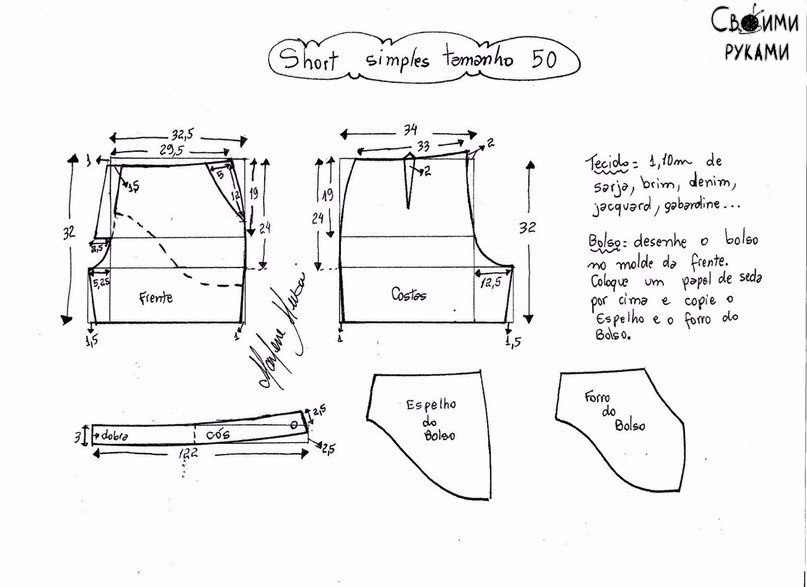 Своими
руками
Short simples tamanho 50
32,5
29,5
1
1,5
5
12
19
24
32
2,5
5,25
Frente
1,5
1
34
33
2
2
19
24
32
12,5
Costas
1
1,5
Tecido= 1,10m de
sarja, brim, denim,
jacquard, gabardine...
Bolso= desenhe o bolso
no molde da frente.
Coloque um papel de seda
por cima e copie o
Espelho e o forro do
Bolso.
3
dobra
cós
2,5
2,5
122
Espelho
do
Bolso
Forro
do
Bolso